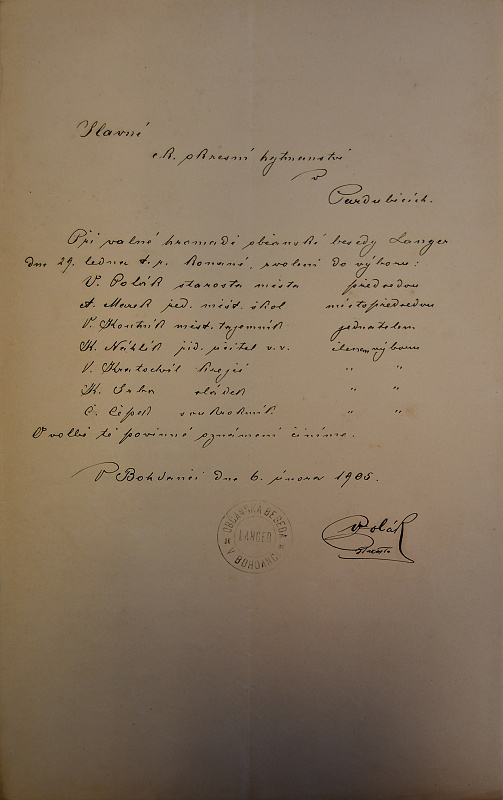 Slavné
ck. okresní hejtmanství
v
Pardubicích.
Při valné hromadě občanské besedy Langer
dne 29. ledna t. r. konané, zvoleni do výboru:
V. Polák starosta města předsedou
A. Marek řed. měst. škol místopředsedou
V. Koutník měst. tajemník jednatelem
K. Náhlík říd. učitel v. v. členem výboru
V. Kratochvíl krejčí " "
K. Srba sládek " "
Č. Čěpek soukromník " "
O volbě té povinné oznámení činíme.
V Bohdanči dne 6. února 1905.
OBČANSKÁ BESEDA
LANGER
V BOHDANČI
VPolák
starosta